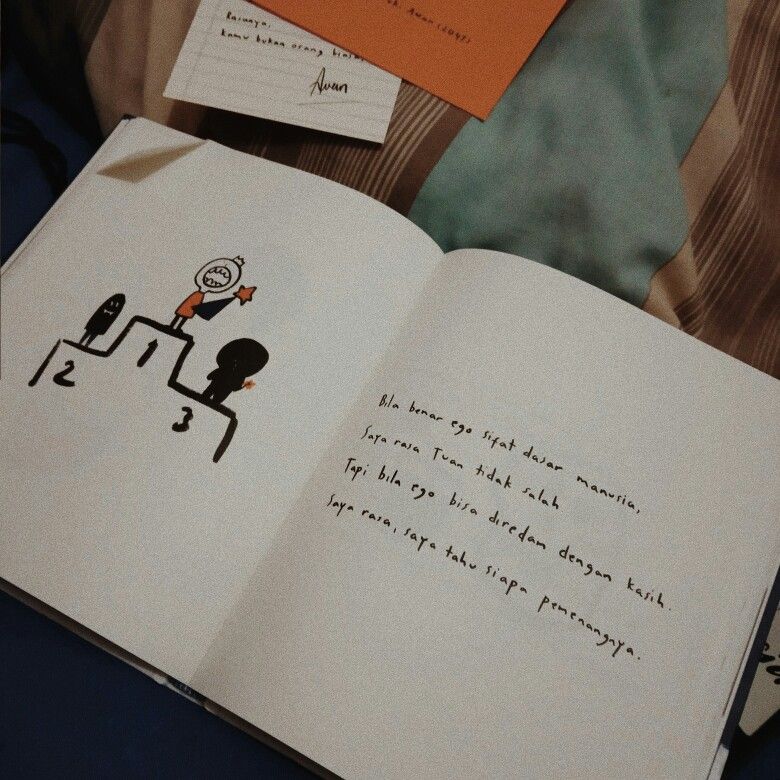 Rasanya,
kamu bukan orang biasa
Awan
Awan (2045)
2
1
3
Bila benar ego sifat dasar manusia,
Saya rasa Tuan tidak salah
Tapi bila ego bisa diredam dengan kasih.
Saya rasa, saya tahu siapa pemenangnya.